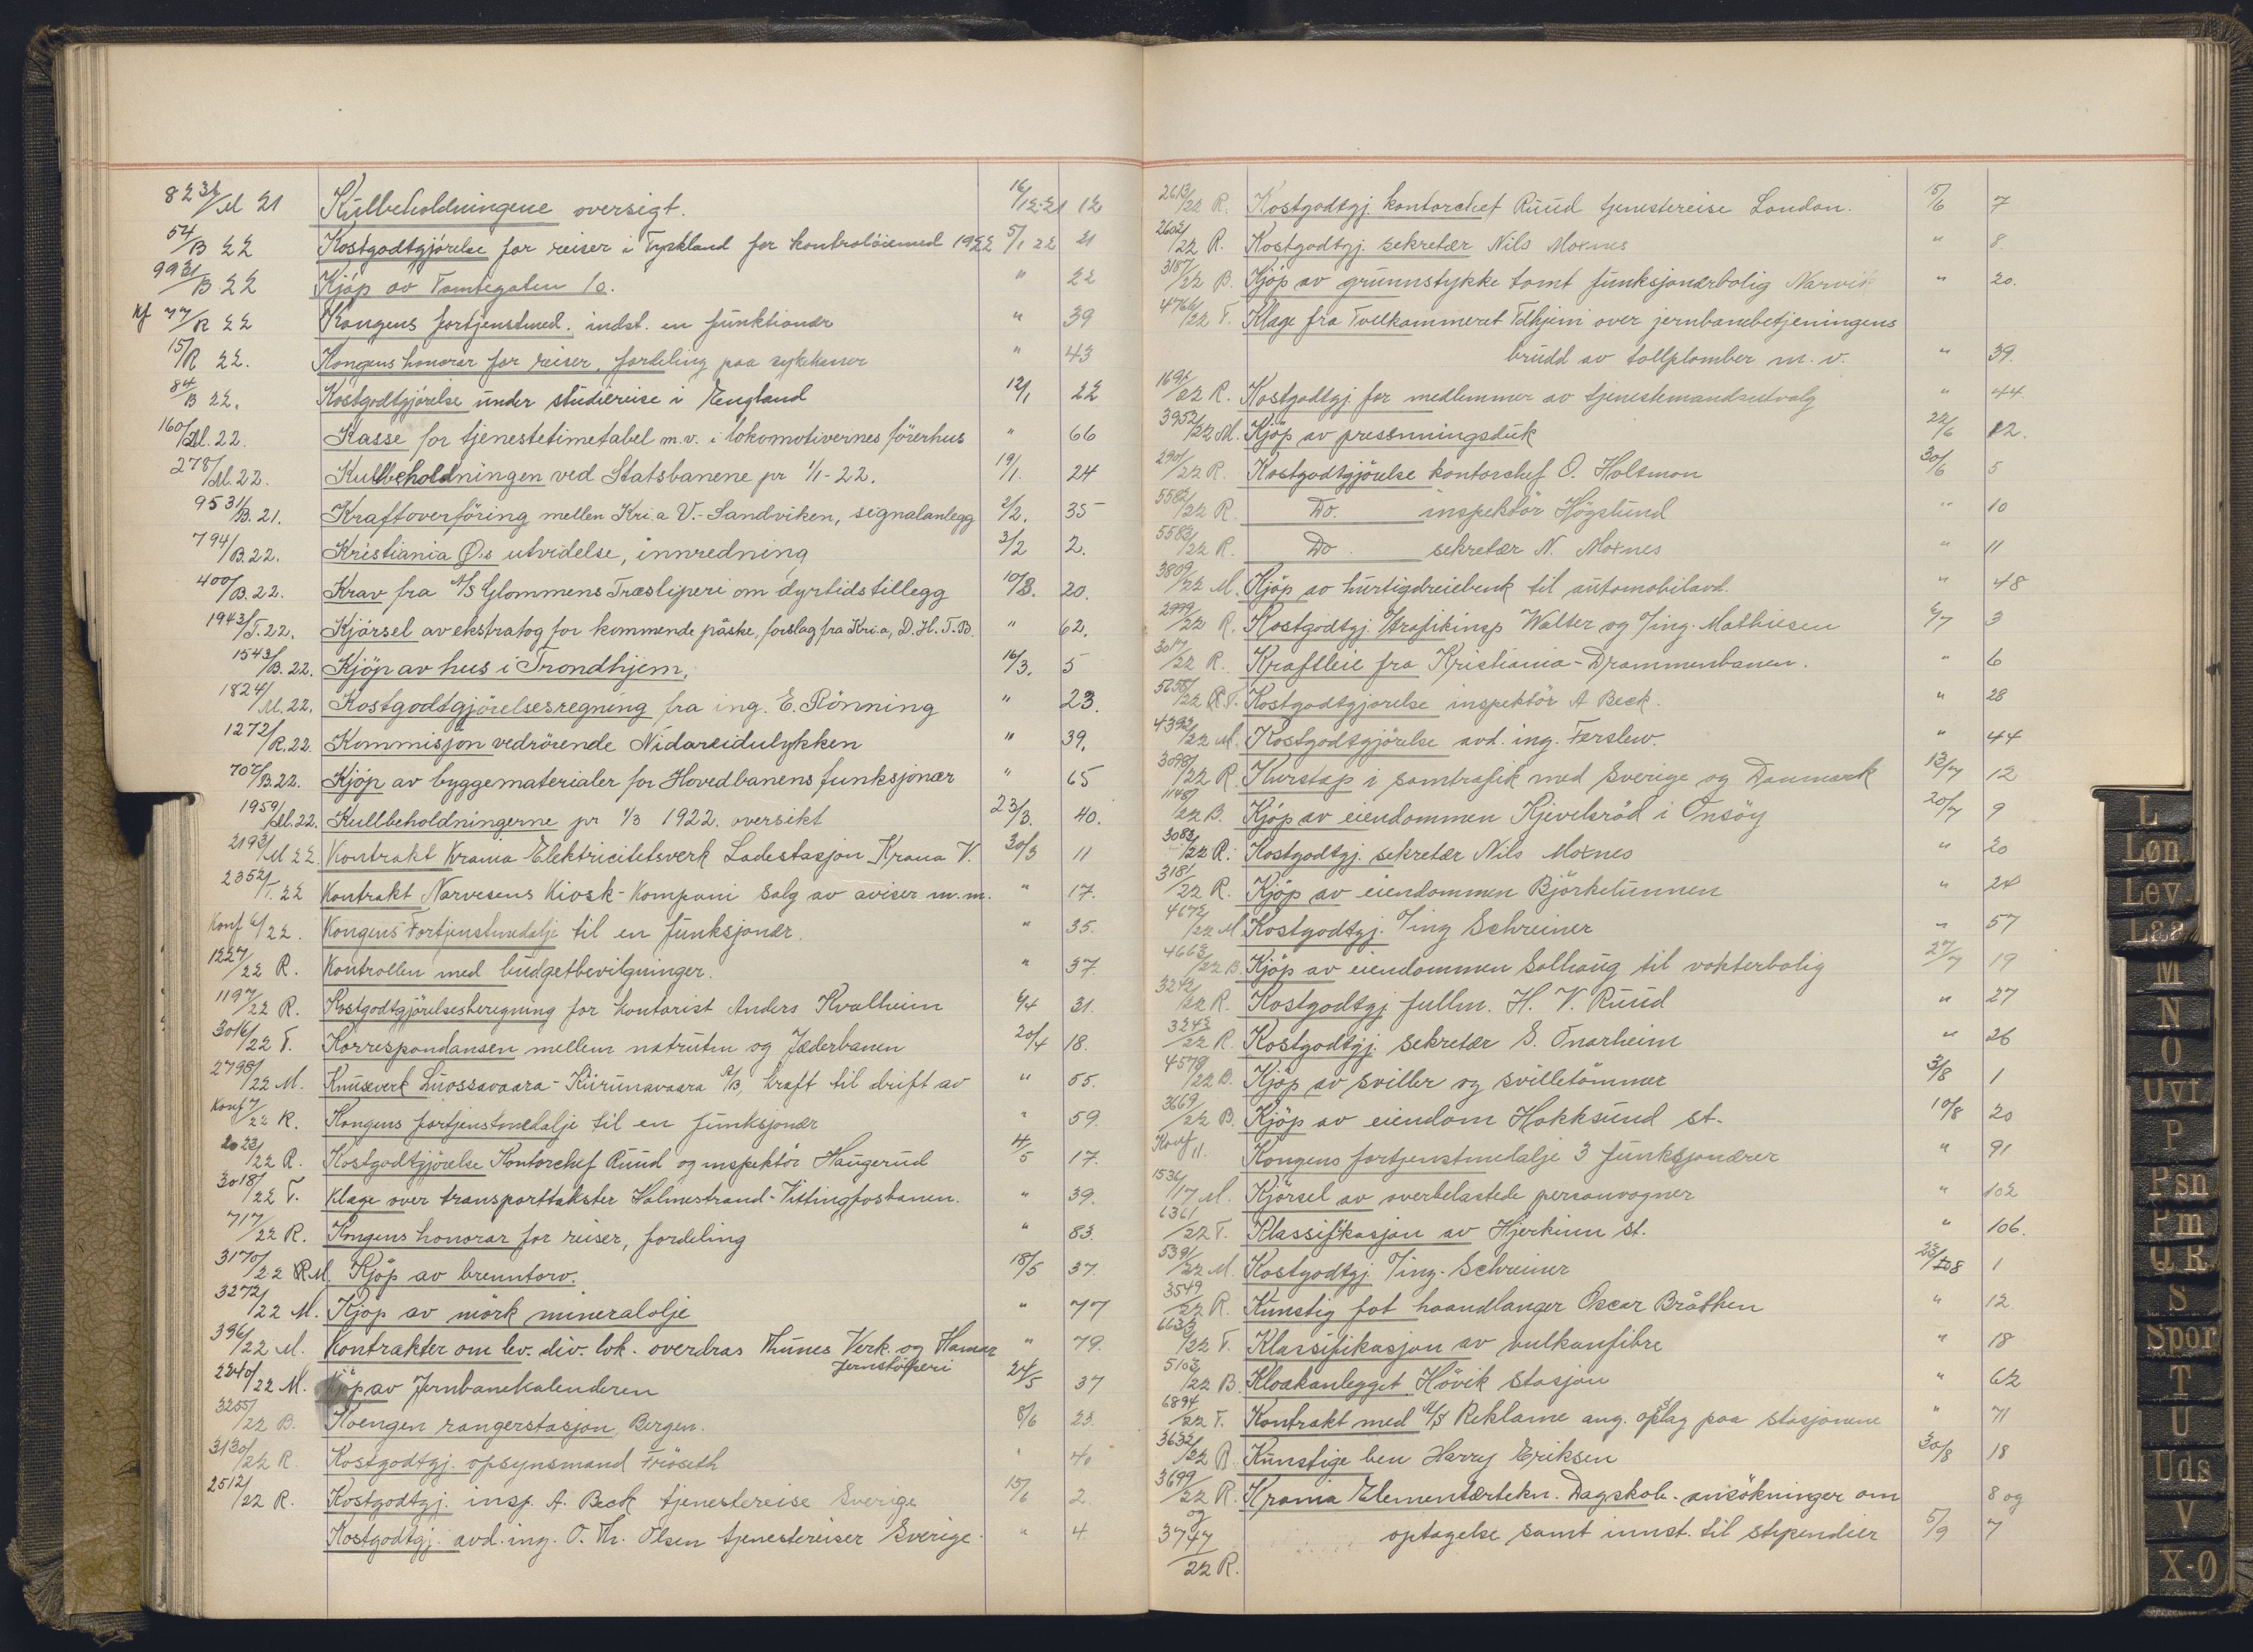 823 2/M 21 Kulbeholdningene oversigt. 16/12-21 12
54/B 22 Kostgodtgjørelse for reiser i Tyskland for kontroløiemed 1922 5/1 22 21
9931/B 22 Kjøp av Tomtegaten 10. " 22
Kf 77/R 22 Kongens fortjenstmed. indst. en funktionær " 39
15/R 22. Kongens honorar for reiser, fordeling paa sykekasser " 43
84/B 22. Kostgodtgjørelse under studiereise i England 12/1 22
160/M. 22. Kasse for tjenestetimetabel m.v. i lokomotivernes førerhus " 66
278/M. 22. Kulbeholdningen ved Statsbanene pr 1/1-22. 19/1. 24
9531/B. 21. Kraftoverføring mellen Kri.a V.-Sandviken, signalanlegg 2/2. 35
794/B. 22. Kristiania Ø.s utvidelse, innredning 3/2 2.
400/B. 22. Krav fra A/S Glommens Træsliperi om dyrtidstillegg 10/3. 20.
1943/T. 22. Kjørsel av ekstratog for kommende påske, forslag fra Kri.a, D. H. T. B. " 62.
1543/B. 22. Kjöp av hus i Trondhjem, 16/3. 5
1824/M. 22. Kostgodtgjörelsesregning fra ing. E. Rönning " 23.
1272/R. 22. Kommisjon vedrörende Nidareidulykken " 39.
702/B. 22. Kjöp av byggematerialer for Hovedbanens funksjonær " 65
1959/M. 22. Kullbeholdningerne pr 1/3 1922. oversikt 23/3. 40.
2193/M 22. Kontrakt Krania Elektricitetsverk Ladestasjon Krania V. 30/3 11
2352/T. 22 Kontrakt Narvesens Kiosk-Kompani salg av aviser m.m. " 17.
Konf 6/22. Kongens Fortjenstmedalje til en funksjonær. " 35.
1227/22 R. Kontrollen med budgetbevilgninger. " 37.
1197/22 R. Kostgodtgjörelsesberegning for kontorist Anders Kvalheim 6/4 31.
3016/22 T. Korrespondansen mellem natruten og Jæderbanen 20/4 18.
2798/22 M. Knuseverk Luossavaara-Kiirunavaara A/B, kraft til drift av " 55.
Konf 7/22 R. Kongens fortjenstmedalje til en funksjonær " 59.
2023/22 R. Kostgodtgjörelse Kontorchef Ruud og inspektör Haugerud 4/5 17.
3018/22 T. Klage over transporttakster Holmestrand-Vittingfosbanen. " 39.
717/22 R. Kongens honorar for reiser, fordeling " 83.
3170/22 M. Kjöp av brenntorv. 18/5 37.
3272/22 M. Kjöp av mörk mineralolje " 77
396/22 M. Kontrakter om lev. div. lok. overdras Thunes Verk. og Hamar " 79.
Jernstöperi
2240/22 M. Kjöp av Jernbanekalenderen 24/5 37
3255/22 B. Koengen rangerstasjon, Bergen. 8/6 23.
3130/22 R. Kostgodtgj. opsynsmand Fröseth " 40
2512/22 R. Kostgodtgj. insp. A. Beck tjenestereise Sverige 15/6 2.
Kostgodtgj. avd. ing. O. Th. Olsen tjenestereiser Sverige. " 4.
2613/22 R. Kostgodtgj. kontorchef Ruud tjenestereise London. 15/6 7
2602/22 R. Kostgodtgj. sekretær Nils Moxnes " 8.
3187/22 B. Kjöp av grunnstykke tomt funksjonærbolig Narvik " 20.
4766/22 T. Klage fra Tvelkammeret Tdhjem over jernbanebetjeningens
brudd av tollplomber m. v. " 39.
1691/22 R. Kostgodtgj. for medlemmer av tjenestemandsutvalg " 44
3952/22 M. Kjöp av presenningsduk 22/6 12.
2901/22 R. Kostgodtgjörelse kontorchef O. Holtmon 30/6 5
5582/22 R. Do. inspektör Högslund " 10
5583/22 R. Do. sekretær N. Moxnes " 11
3809/22 M. Kjöp av hurtigdreiebenk til automobilavd. " 48
2999/22 R. Kostgodtgj. trafikinsp Walter og Ting. Mathiesen 6/7 3
3017/22 R. Kraftleie fra Kristiania-Drammenbanen. " 6
5658/22 T. Kostgodtgjørelse inspektör A Beck. " 28
4392/22 M. Kostgodtgjörelse avd. ing. Ferslew. " 44
3098/22 R. Kurstap i samtrafik med Sverige og Danmark 13/7 12
1148/22 B. Kjöp av eiendommen Kjevelsröd i Onsöy 20/7 9
3083/22 R. Kostgodtgj. sekretær Nils Moxnes " 20
3181/22 R. Kjöp av eiendommen Björkelunnen " 24
4672/22 M Kostgodtgj. Ting Schreiner " 57
4663/22 B. Kjöp av eiendommen Solhaug til vokterbolig 27/7 19
3242/22 R. Kostgodtgj fullm. H. V. Ruud " 27
3243/22 R. Kostgodtgj. sekretær S. Onarheim " 26
4579/22 B. Kjöp av sviller og svilletömmer 3/8 1
3669/22 B. Kjöp av eiendom Hokksund st. 10/8 20
Konf 11. Kongens fortjenstmedalje 3 funksjonærer " 91
1536/17 M. Kjörsel av overbelastede personvogner " 102
6361/22 T. Klassifikasjon av Hjerkinn st. " 106.
5391/22 M. Kostgodtgj. Ting. Schreiner 23/8 1
3549/22 R. Kunstig fot haandlanger Oscar Bråthen " 12
6633/22 T. Klassifikasjon av vulkanfibre " 18
5103/22 B. Kloakanlegget Hövik stasjon " 62
6894/22 T. Kontrakt med A/S Reklame ang. opslag paa stasjonene " 71
3632/22 R. Kunstige ben Harry Eriksen 30/8 18
3699/22 R. Krania Elementærtekn. Dagskole. ansökninger om 8 og
og 3747/22 R. optagelse samt innst. til stipendier 5/9 7
L
Løn
Lev
Laa
M
N
O
Ovf
P
Psn
Pm
Q R
S
Spor
T
U
Uds
V
X-Ø